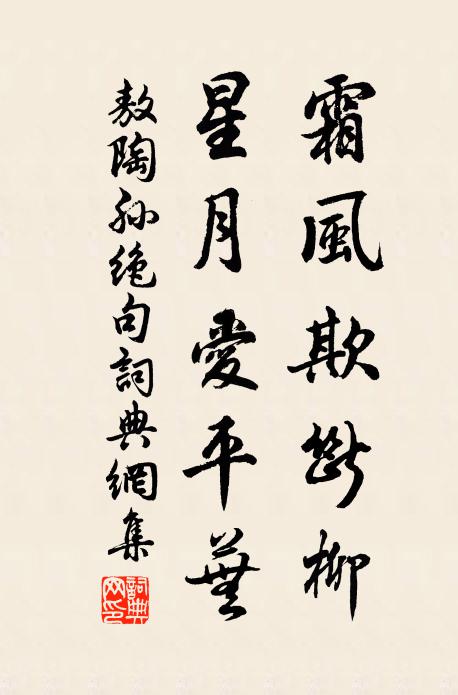 霜風欺斷柳
星月愛平蕪
敖陶孫絕句詞典網集
詞典網印